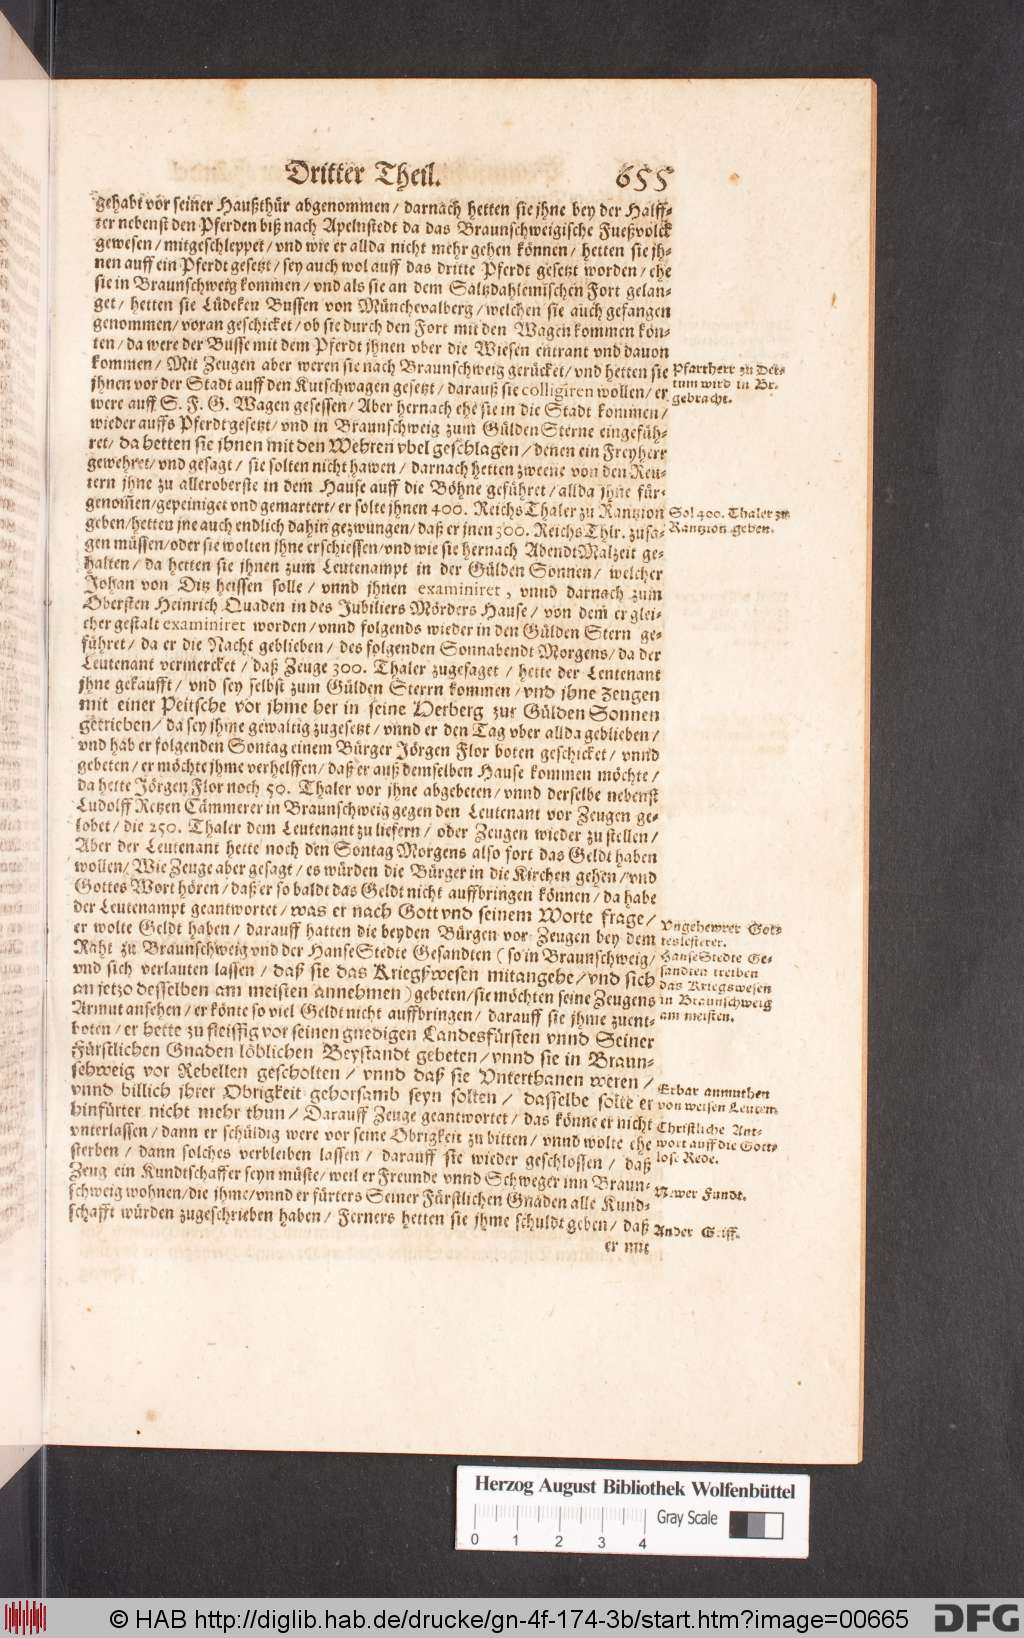 Dritter Theil. 655
gehabt vor seiner Haußthür abgenommen / darnach hetten sie jhne bey der Halff-
ter nebenst den Pferden biß nach Apelnstedt da das Braunschweigische Fueßvolck
gewesen / mitgeschleppet / vnd wie er allda nicht mehr gehen können / hetten sie jh-
nen auff ein Pferdt gesetzt / sey auch wol auff das dritte Pferdt gesetzt worden / ehe
sie in Braunschweig kommen / vnd als sie an dem Saltzdahlemischen Fort gelan-
get / hetten sie Lüdeken Bussen von Münchevalberg / welchen sie auch gefangen
genommen / voran geschicket / ob sie durch den Fort mit den Wagen kommen kön-
ten / da were der Busse mit dem Pferdt jhnen vber die Wiesen entrant vnd dauon
kommen / Mit Zeugen aber weren sie nach Braunschweig gerücket / vnd hetten sie
jhnen vor der Stadt auff den Kutschwagen gesetzt / darauß sie colligiren wollen / er
were auff S. F. G. Wagen gesessen / Aber hernach ehe sie in die Stadt kommen /
wieder auffs Pferdt gesetzt / vnd in Braunschweig zum Gülden Sterne eingefüh-
ret / da hetten sie jhnen mit den Wehren vbel geschlagen / denen ein Freyherr
gewehret / vnd gesagt / sie solten nicht hawen / darnach hetten zweene von den Reu-
tern jhne zu alleroberste in dem Hause auff die Böhne geführet / allda jhne für-
genom̃en / gepeiniget vnd gemartert / er solte jhnen 400. ReichsThaler zu Rantzion
geben / hetten jne auch endlich dahin gezwungen / daß er jnen 300. Reichs Thlr. zusa-
gen müssen / oder sie wolten jhne erschiessen / vnd wie sie hernach AbendtMalzeit ge-
halten / da hetten sie jhnen zum Leutenampt in der Gülden Sonnen / welcher
Johan von Ditz heissen solle / vnnd jhnen examiniret, vnnd darnach zum
Obersten Heinrich Quaden in des Jubiliers Mörders Hause / von dem er glei-
cher gestalt examiniret worden / vnnd folgends wieder in den Gülden Stern ge-
führet / da er die Nacht geblieben / des folgenden Sonnabendt Morgens / da der
Leutenant vermercket / daß Zeuge 300. Thaler zugesaget / hette der Leutenant
jhne gekaufft / vnd sey selbst zum Gülden Sterrn kommen / vnd jhne Zeugen
mit einer Peitsche vor jhme her in seine Herberg zur Gülden Sonnen
getrieben / da sey jhme gewaltig zugesetzt / vnnd er den Tag vber allda geblieben /
vnd hab er folgenden Sontag einem Bürger Jörgen Flor boten geschicket / vnnd
gebeten / er möchte jhme verhelffen / daß er auß demselben Hause kommen möchte /
da hette Jörgen Flor noch 50. Thaler vor jhne abgebeten / vnnd derselbe nebenst
Ludolff Retzen Cämmerer in Braunschweig gegen den Leutenant vor Zeugen ge-
lobet / die 250. Thaler dem Leutenant zu liefern / oder Zeugen wieder zu stellen /
Aber der Leutenant hette noch den Sontag Morgens also fort das Geldt haben
wollen / Wie Zeuge aber gesagt / es würden die Bürger in die Kirchen gehen / vnd
Gottes Wort hören / daß er so baldt das Geldt nicht auffbringen können / da habe
der Leutenampt geantwortet / was er nach Gott vnd seinem Worte frage /
er wolte Geldt haben / darauff hatten die beyden Bürgen vor Zeugen bey dem
Raht zu Braunschweig vnd der HanseStedte Gesandten ( so in Braunschweig /
vnd sich verlauten lassen / daß sie das Kriegßwesen mitangehe / vnd sich
an jetzo desselben am meisten annehmen ) gebeten / sie möchten seine Zeugens
Armut ansehen / er könte so viel Geldt nicht auffbringen / darauff sie jhme zuent-
boten / er hette zu fleissig vor seinen gnedigen Landesfürsten vnnd Seiner
Fürstlichen Gnaden löblichen Beystandt gebeten / vnnd sie in Braun-
schweig vor Rebellen gescholten / vnnd daß sie Vnterthanen weren /
vnnd billich jhrer Obrigkeit gehorsamb seyn solten / dasselbe solte er
hinfürter nicht mehr thun / Darauff Zeuge geantwortet / das könne er nicht
vnterlassen / dann er schüldig were vor seine Obrigkeit zu bitten / vnnd wolte ehe
sterben / dann solches verbleiben lassen / darauff sie wieder geschlossen / daß
Zeug ein Kundtschaffer seyn müste / weil er Freunde vnnd Schweger inn Braun-
schweig wohnen / die jhme / vnnd er fürters Seiner Fürstlichen Gnaden alle Kund-
schafft würden zugeschrieben haben / Ferners hetten sie jhme schuldt geben / daß
er mit
Pfarrherr zu Det-
tum wird in Br.
gebracht.
Sol 400. Thaler zu
Rantzion geben.
Vngehewrer Got-
teslesterer.
HanseStedte Ge-
sandten treiben
das Kriegswesen
in Braunschweig
am meisten.
Erbar anmuthen
von weisen Leuten.
Christliche Ant-
wort auff die Gott-
lose Rede.
Newer Fundt.
Ander Griff.
Herzog August Bibliothek Wolfenbüttel
Gray Scale
0 1 2 3 4
© HAB http://diglib.hab.de/drucke/gn-4f-174-3b/start.htm?image=00665
DFG